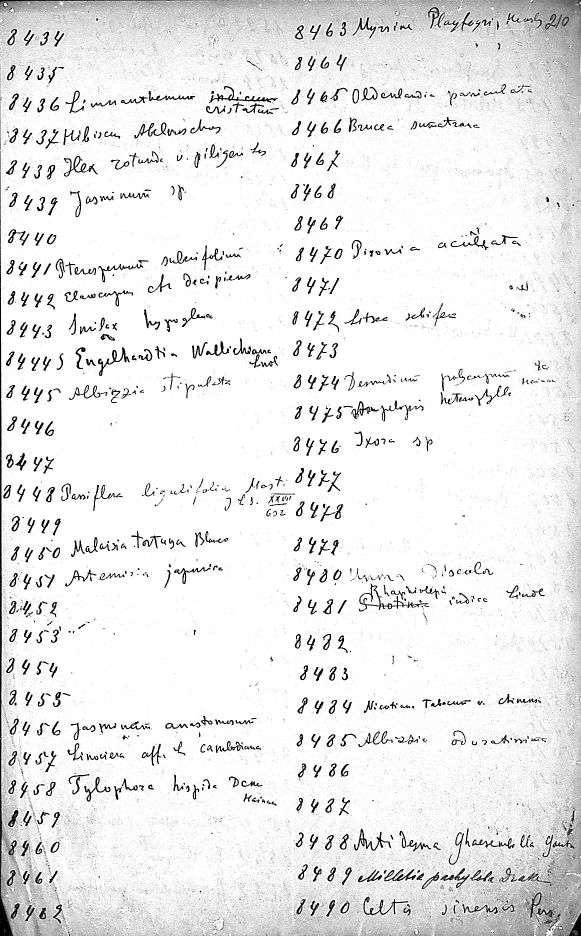 210
8434
8435
8436 Limnanthemum indicum
cristatum
8437 Hibiscus Abelmoschus
8438 Ilex rotunda v. piligera
8439 Jasminum sp.
8440
8441 Pterospermum
8442 Elaeocarpus decipiens
8443 Smilax hypoglauca
8444 Engelhardtia Wallichiana
Lindl
8445 Albizzia stipulata
8446
8447
8448 Passiflora ligulifolia Mast.
J L S. XXVII
632
8449
8450 Malaisia tortuosa Blanco
8451 Artemisia japonica
8452
8453
8454
8455
8456 Jasminum anastomosum
8457 Linociera aff. cambodiana
8458 Tylophora hispida Dcne
Hainan
8459
8460
8461
8462
8463 Myrsine Playfairi, Hemsly
8464
8465 Oldenlandia paniculata
8466 Brucea sumatrana
8467
8468
8469
8470 Pisonia aculeata
8471
8472 Litsea sebifera
8473
8474 Desmodium polycarpum
Hainan
8475 Ampelopsis heterophylla
8476 Ixora sp
8477
8478
8479
8480 Unona Discolor
Rhaphiolepis
8481 Photinia indica Lindl
8482
8483
8484 Nicotiana Tabacum v. chinensis
8485 Albizzia odoratissima
8486
8487
8488 Antidesma Ghaesembilla Gaertn
8489 Milletia pachyloba Drake
8490 Celtis sinensis Pers